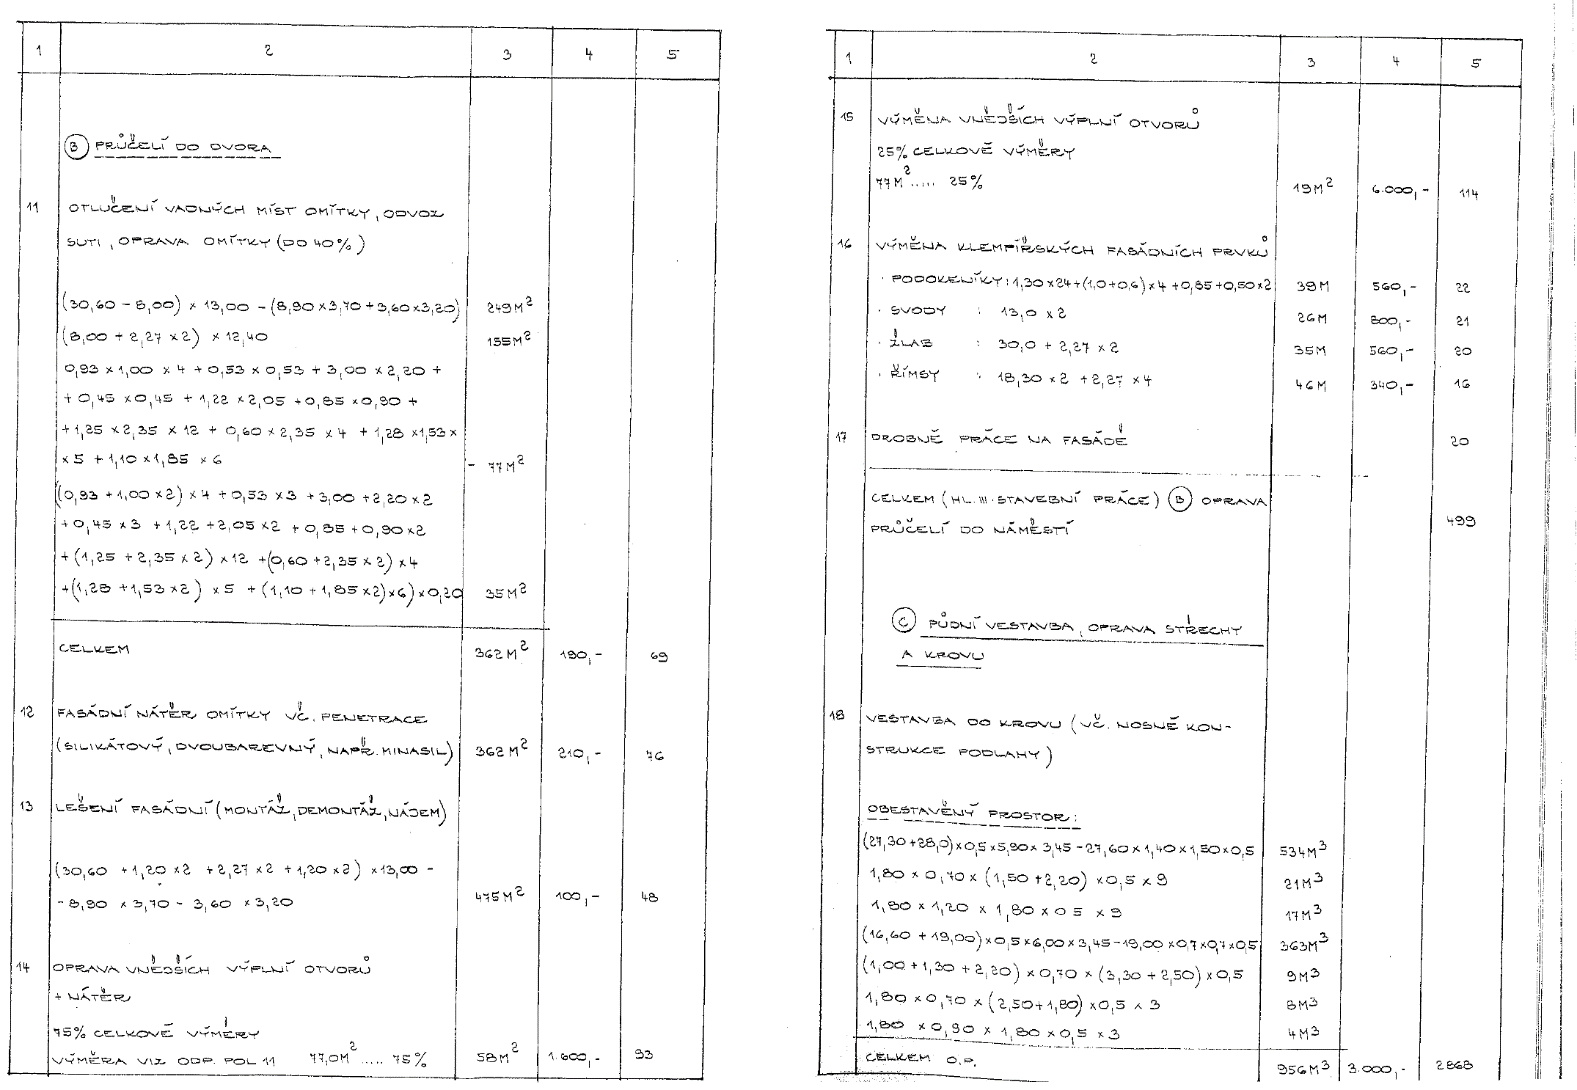 1 2 3 4 5
Ⓑ PRŮČELÍ DO DVORA
11 OTLUČENÍ VADNÝCH MÍST OMÍTKY, ODVOZ
SUTI, OPRAVA OMÍTKY (DO 40%)
(30,60 - 8,00) × 13,00 - (8,90×3,70+3,60×3,20) 249M²
(8,00 + 2,27 ×2) × 12,40 155M²
0,93 ×1,00 × 4 + 0,53 × 0,53 + 3,00 × 2,20 +
+ 0,45 ×0,45 + 1,22 ×2,05 +0,85 ×0,90 +
+1,25 ×2,35 × 12 + 0,60 ×2,35 × 4 + 1,28 ×1,53×
×5 + 1,10 ×1,85 × 6 - 77M²
((0,93 +1,00 ×2) ×4 +0,53 ×3 +3,00 +2,20 ×2
+0,45 ×3 +1,22 +2,05 ×2 +0,85 +0,90×2
+(1,25 +2,35 ×2) ×12 +(0,60 +2,35 ×2) ×4
+(1,28 +1,53 ×2) ×5 +(1,10 +1,85 ×2)×6)×0,20 35M²
CELKEM 362M² 190,- 69
12 FASÁDNÍ NÁTĚR OMÍTKY VČ. PENETRACE
(SILIKÁTOVÝ, DVOUBAREVNÝ, NAPŘ. MINASIL) 362M² 210,- 76
13 LEŠENÍ FASÁDNÍ (MONTÁŽ, DEMONTÁŽ, NÁJEM)
(30,60 +1,20 ×2 +2,27 ×2 +1,20 ×2) ×13,00 -
- 8,90 ×3,70 - 3,60 ×3,20 475M² 100,- 48
14 OPRAVA VNĚJŠÍCH VÝPLNÍ OTVORŮ
+ NÁTĚR
75% CELKOVÉ VÝMĚRY
VÝMĚRA VIZ ODP. POL 11 77,0M² ..... 75% 58M² 1.600,- 93
1 2 3 4 5
15 VÝMĚNA VNĚJŠÍCH VÝPLNÍ OTVORŮ
25% CELKOVÉ VÝMĚRY
77M² ..... 25% 19M² 6.000,- 114
16 VÝMĚNA KLEMPÍŘSKÝCH FASÁDNÍCH PRVKŮ
· PODOKENÍKY: 1,30 ×24+(1,0+0,6)×4 +0,85+0,50×2 39M 560,- 22
· SVODY : 13,0 ×2 26M 800,- 21
· ŽLAB : 30,0 + 2,27 ×2 35M 560,- 20
· ŘÍMSY : 18,30 ×2 +2,27 ×4 46M 340,- 16
17 DROBNÉ PRÁCE NA FASÁDĚ 20
CELKEM (HL. III. STAVEBNÍ PRÁCE) Ⓑ OPRAVA
PRŮČELÍ DO NÁMĚSTÍ 499
Ⓒ PŮDNÍ VESTAVBA, OPRAVA STŘECHY
A KROVU
18 VESTAVBA DO KROVU (VČ. NOSNÉ KON-
STRUKCE PODLAHY)
OBESTAVĚNÝ PROSTOR:
(27,30+28,0)×0,5×5,90× 3,45-27,60×1,40×1,50×0,5 534M³
1,80 × 0,70 × (1,50 +2,20) ×0,5 × 9 21M³
1,80 ×1,20 × 1,80 × 0 5 × 9 17M³
(16,60 + 19,00)×0,5×6,00×3,45-19,00×0,7×0,7×0,5 363M³
(1,00 +1,30 + 2,20) × 0,70 × (3,30 + 2,50) × 0,5 9M³
1,80 × 0,70 × (2,50+1,80) ×0,5 × 3 8M³
1,80 × 0,90 × 1,80 ×0,5 ×3 4M³
CELKEM O.P. 956M³ 3.000,- 2868